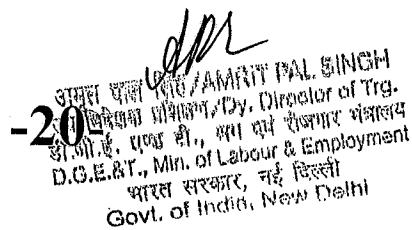 अमृत पाल सिंह/AMRIT PAL SINGH
प्रशिक्षण/Dy. Director of Trg.
-20-
डी.जी.ई. एण्ड टी., श्रम एवं रोजगार मंत्रालय
D.G.E.&T., Min. of Labour & Employment
भारत सरकार, नई दिल्ली
Govt. of India, New Delhi